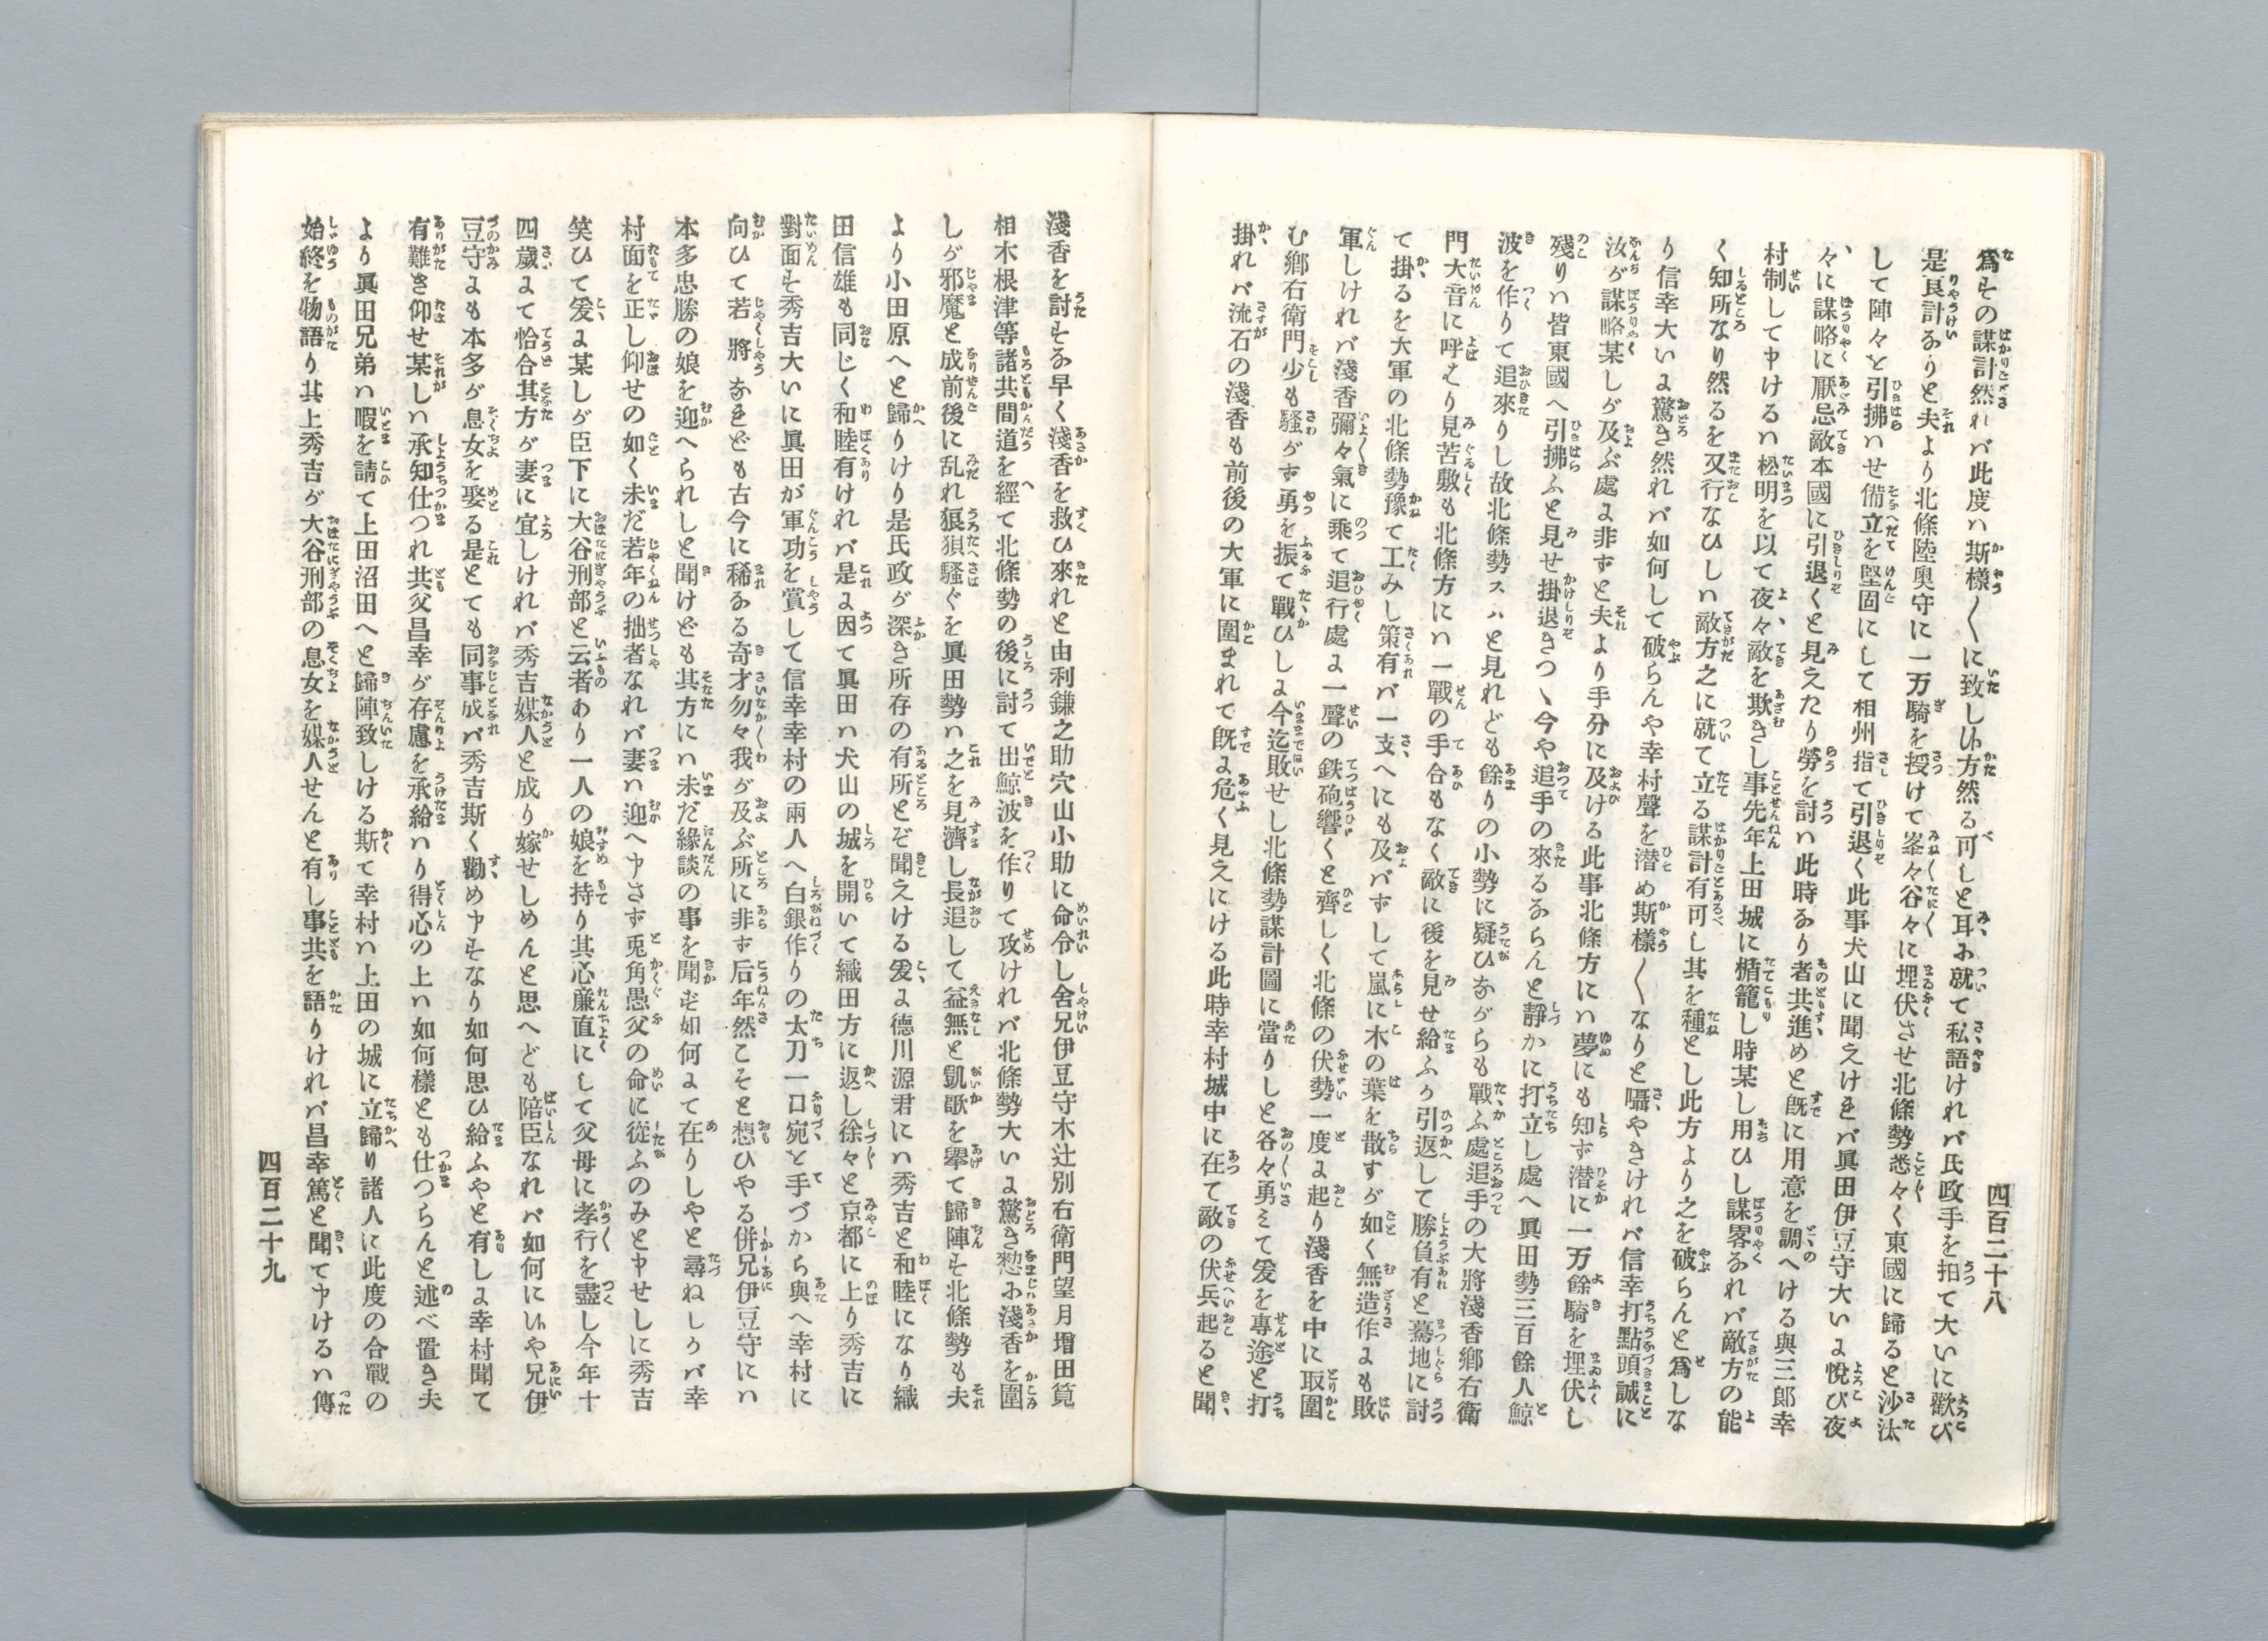 四百二十八
爲すの謀計然れバ此度ハ斯樣〳〵に致し候方然る可しと耳に就て私語けれバ氏政手を扣て大いに歡び
是良計なりと夫より北條陸奥守に一万騎を授けて峯々谷々に埋伏させ北條勢悉々く東國に歸ると沙汰
して陣々を引拂ハせ備立を堅固にして相州指て引退く此事犬山に聞えけれバ眞田伊豆守大いに悅び夜
々に謀略に厭忌敵本國に引退くと見えたり勞を討ハ此時なり者共進めと既に用意を調へける與三郎幸
村制して申けるハ松明を以て夜々敵を欺きし事先年上田城に楯籠し時某し用ひし謀畧なれバ敵方の能
く知所なり然るを又行なひしハ敵方之に就て立る謀計有可し其を種とし此方より之を破らんと爲しな
り信幸大いに驚き然れバ如何して破らんや幸村聲を潜め斯樣〳〵なりと囁やきけれバ信幸打點頭誠に
汝が謀略某しが及ぶ處に非ずと夫より手分に及ける此事北條方にハ夢にも知ず潜に一万餘騎を埋伏し
殘りハ皆東國へ引拂ふと見せ掛退きつゝ今や追手の來るならんと靜かに打立し處へ眞田勢三百餘人鯨
波を作りて追來りし故北條勢スハと見れども餘りの小勢に疑ひながらも戰ふ處追手の大將淺香鄕右衛
門大音に呼はり見苦敷も北條方にハ一戰の手合もなく敵に後を見せ給ふか引返して勝負有と驀地に討
て掛るを大軍の北條勢豫て工みし策有バ一支へにも及バずして嵐に木の葉を散すが如く無造作にも敗
軍しけれバ淺香彌々氣に乘て追行處に一聲の鉄砲響くと齊しく北條の伏勢一度に起り淺香を中に取圍
む鄕右衛門少も騷がず勇を振て戰ひしに今迄敗せし北條勢謀計圖に當りしと各々勇ミて爰を專途と打
掛れバ流石の淺香も前後の大軍に圍まれて既に危く見えにける此時幸村城中に在て敵の伏兵起ると聞
淺香を討すな早く淺香を救ひ來れと由利鎌之助穴山小助に命令し舍兄伊豆守木辻別右衛門望月增田筧
相木根津等諸共間道を經て北條勢の後に討て出鯨波を作りて攻けれバ北條勢大いに驚き愸に淺香を圍
しが邪魔と成前後に乱れ狼狽騷ぐを眞田勢ハ之を見濟し長追して益無と凱歌を擧て歸陣す北條勢も夫
より小田原へと歸りけり是氏政が深き所存の有所とぞ聞えける爰に德川源君にハ秀吉と和睦になり織
田信雄も同じく和睦有けれバ是に因て眞田ハ犬山の城を開いて織田方に返し徐々と京都に上り秀吉に
對面す秀吉大いに眞田が軍功を賞して信幸幸村の兩人へ白銀作りの太刀一口宛を手づから與へ幸村に
向ひて若將なれども古今に稀なる奇才勿々我が及ぶ所に非ず后年然こそと想ひやる併兄伊豆守にハ
本多忠勝の娘を迎へられしと聞けども其方にハ未だ緣談の事を聞ず如何に在りしやと尋ねしかバ幸
村面を正し仰せの如く未だ若年の拙者なれバ妻ハ迎へ申さず兎角愚父の命に從ふのみと申せしに秀吉
笑ひて爰に某しが臣下に大谷刑部と云者あり一人の娘を持り其心廉直にして父母に孝行を盡し今年十
四歲にて恰合其方が妻に宜しけれバ秀吉媒人と成り嫁せしめんと思へども陪臣なれバ如何に候や兄伊
豆守にも本多が息女を娶る是とても同事成バ秀吉斯く勸め申すなり如何思ひ給ふやと有しに幸村聞て
有難き仰せ某しハ承知仕つれ共父昌幸が存慮を承給ハり得心の上ハ如何樣とも仕つらんと述べ置き夫
より眞田兄弟ハ暇を請て上田沼田へと歸陣致しける斯て幸村ハ上田の城に立歸り諸人に此度の合戰の
始終を物語り其上秀吉が大谷刑部の息女を媒人せんと有し事共を語りけれバ昌幸篤と聞て申けるハ傳
四百二十九